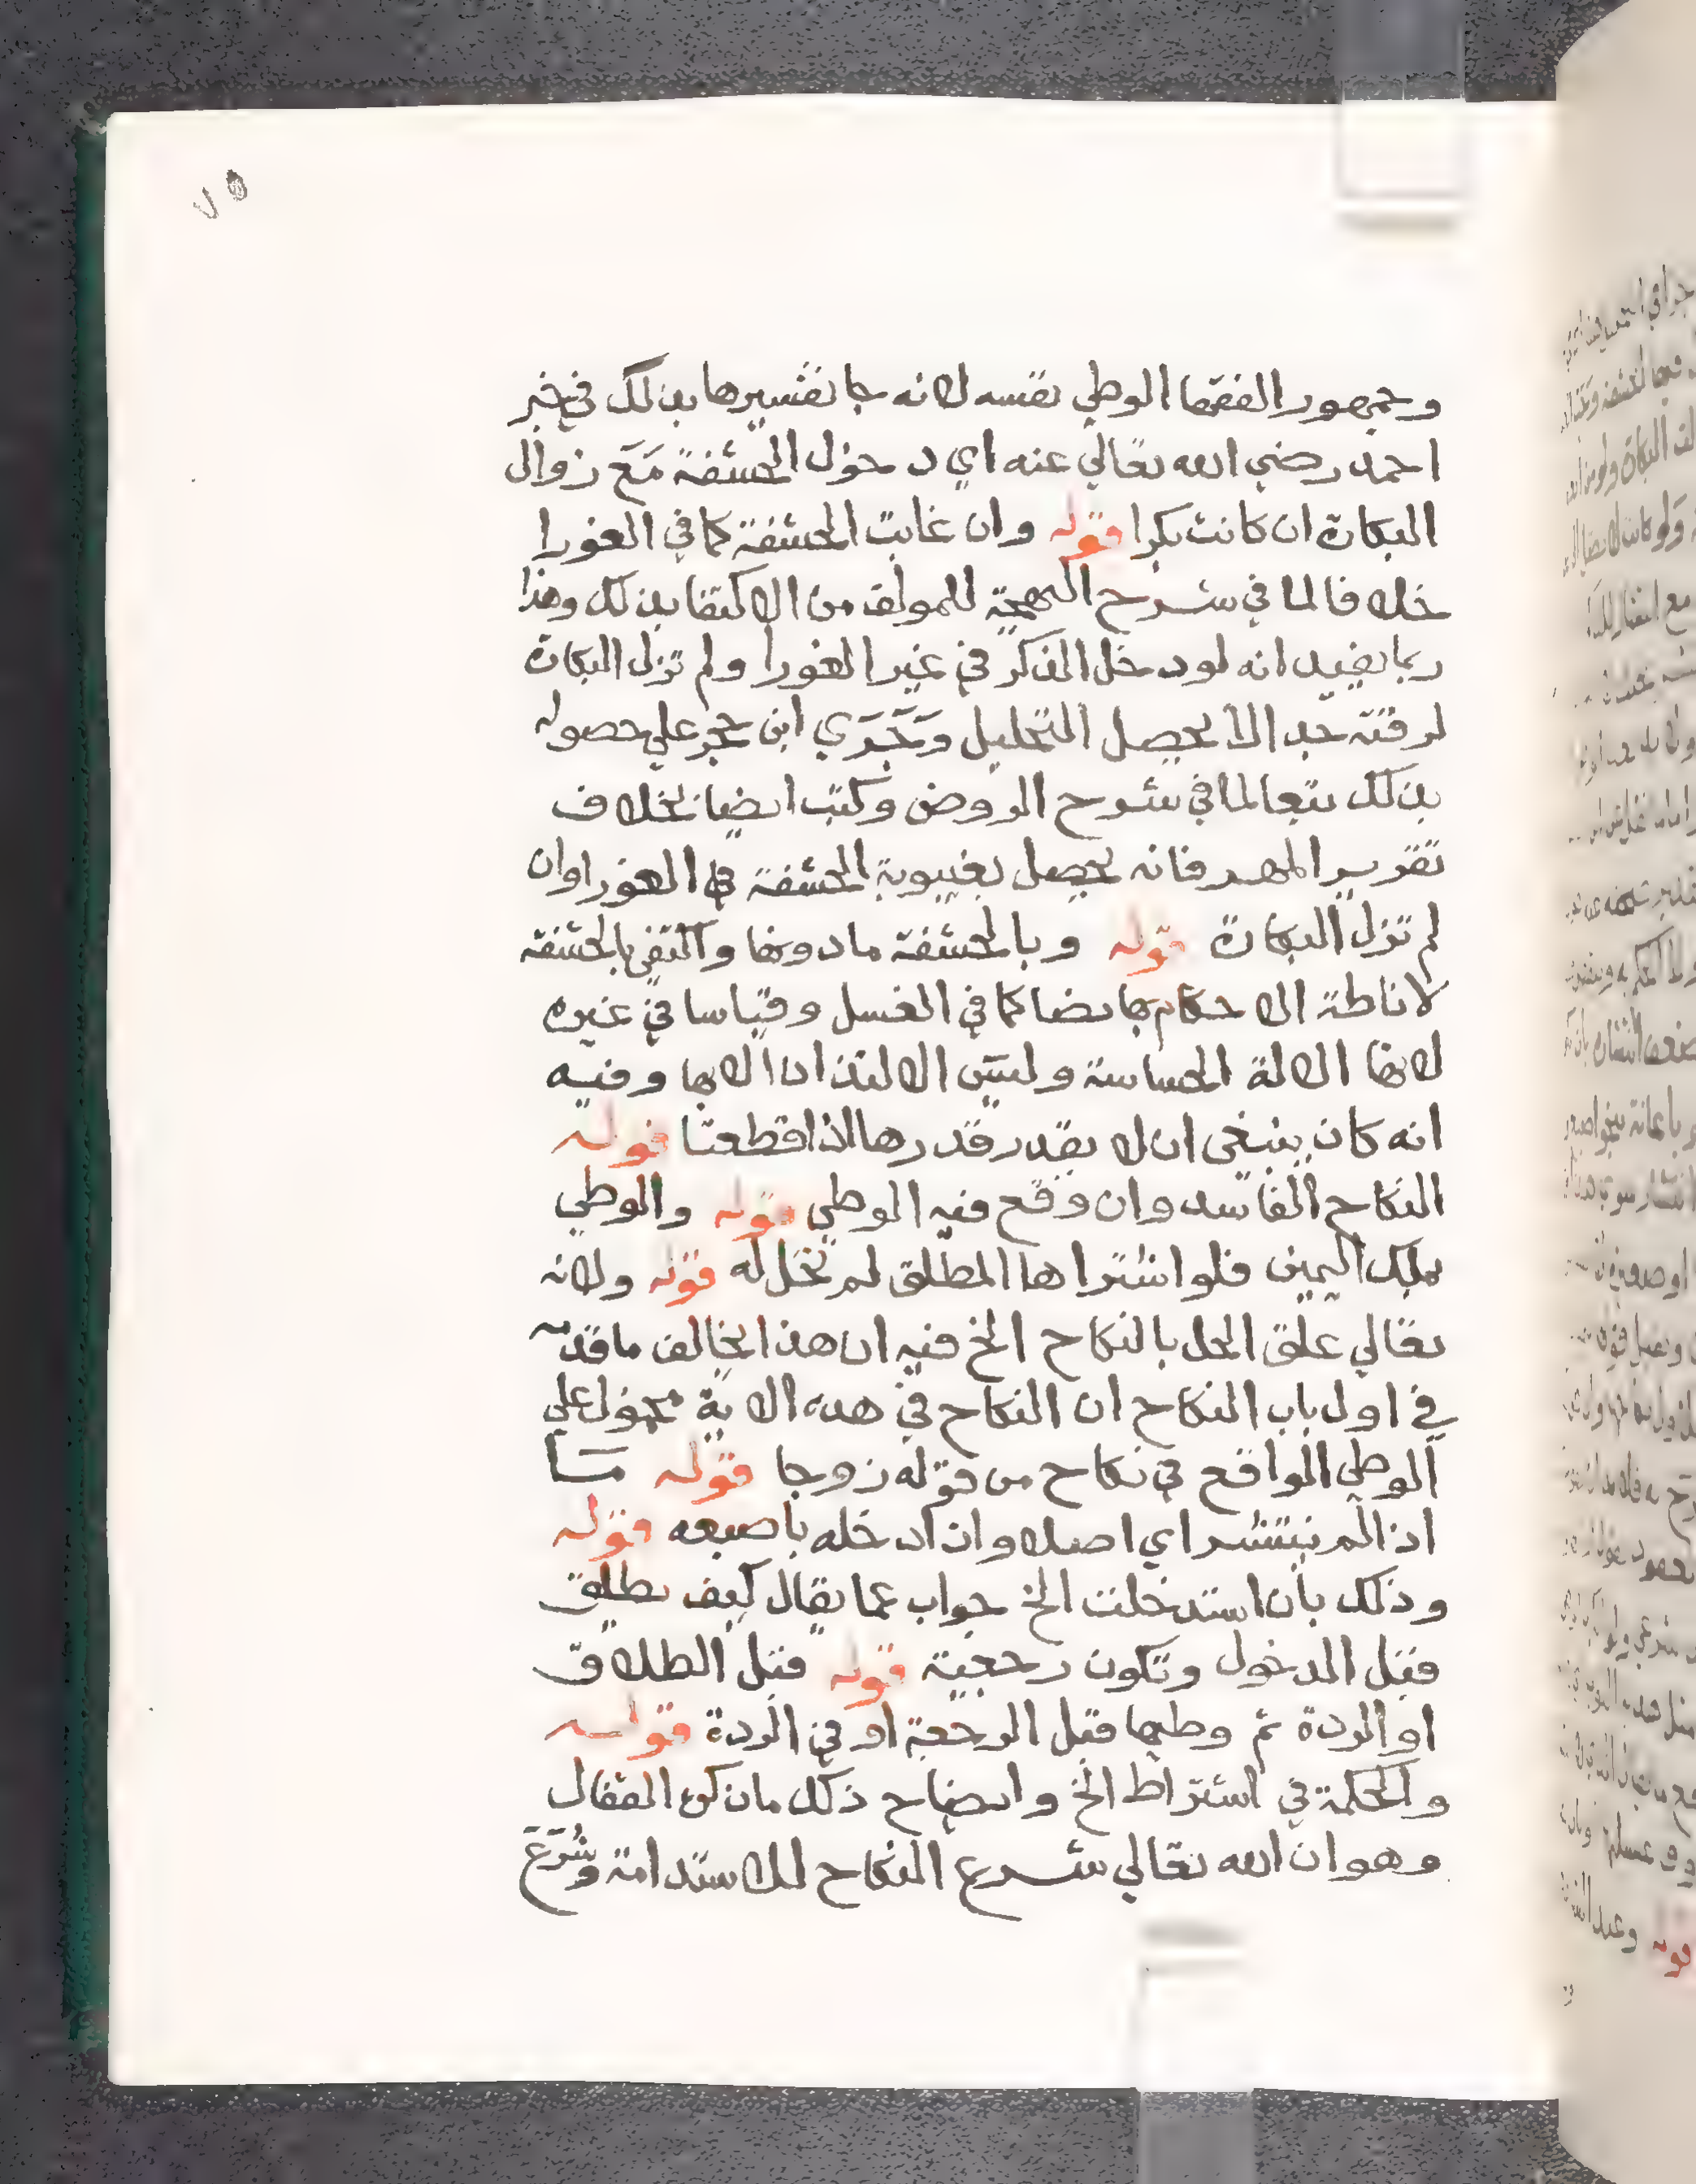 ٧٥
وجمهور الفقها الوطي نفسه لانه جا تفسيرها بذلك في خبر
احمد رضي الله تعالي عنه اي دخول الحشفة مَعَ زوال
البكارة ان كانت بكرا قوله وان غابت الحشفة كما في الغورا
خلافا لما في شرح البهجة للمولف من الاكتفا بذلك وهذا
ربما يفيد انه لو دخل الذكر في غير الغورا ولم تزل البكارة
لرقته جدا لا يحصل التحليل وَجَرَي ابن حجر علي حصوله
بذلك تبعا لما في شرح الروض وكتب ايضا بخلاف
تقرير المهر فانه يحصل بغيبوبة الحشفة في الغورا وان
لم تزل البكارة قوله وبالحشفة ما دونها واكتفي بالحشفة
لاناطة الاحكام بها نصا كما في الغسل وقياسا في غيره
لانها الالة الحساسة وليس الالتذاذ الا بها وفيه
انه كان ينبغي ان لا يقدر قدرها اذا قطعت قوله
النكاح الفاسد وان وقع فيه الوطي قوله والوطي
بملك اليمين فلو اشتراها المطلق لم تحل له قوله ولانه
تعالي علق الحل بالنكاح الخ فيه ان هذا يخالف ما قدمه
في اول باب النكاح ان النكاح في هذه الاية محمول علي
الوطي الواقع في نكاح من قوله زوجا قوله مــا
اذا لم ينتشر اي اصلا وان ادخله باصبعه قوله
وذلك بان استدخلت الخ جواب عما يقال كيف تطلق
قبل الدخول وتكون رجعية قوله قبل الطلاق
او الردة ثم وطيها قبل الرجعة او في الردة قوله
والحكمة في اشتراط الخ وايضاح ذلك ما ذكره القفال
وهو ان الله تعالي شرع النكاح للاستدامة وشَرَعَ